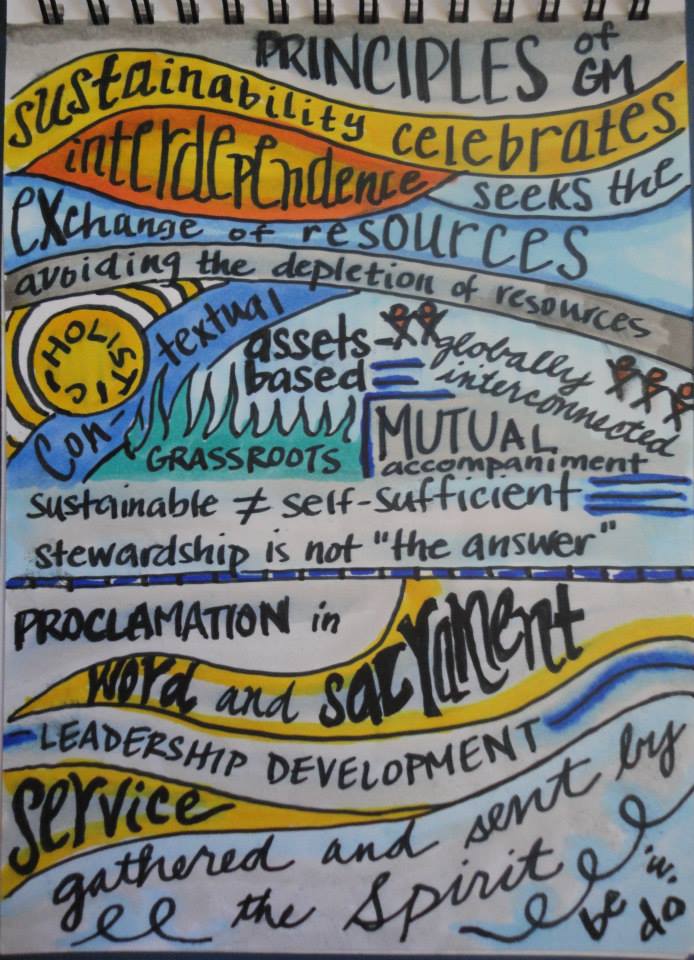 PRINCIPLES of GM
sustainability celebrates
interdependence seeks the
exchange of resources
avoiding the depletion of resources
HOLISTIC
Con-textual
assets-based
globally interconnected
GRASSROOTS
MUTUAL
accompaniment
sustainable ≠ self-sufficient
stewardship is not "the answer"
PROCLAMATION in
word and sacrament
LEADERSHIP DEVELOPMENT
service
gathered and sent by
the Spirit
be
do